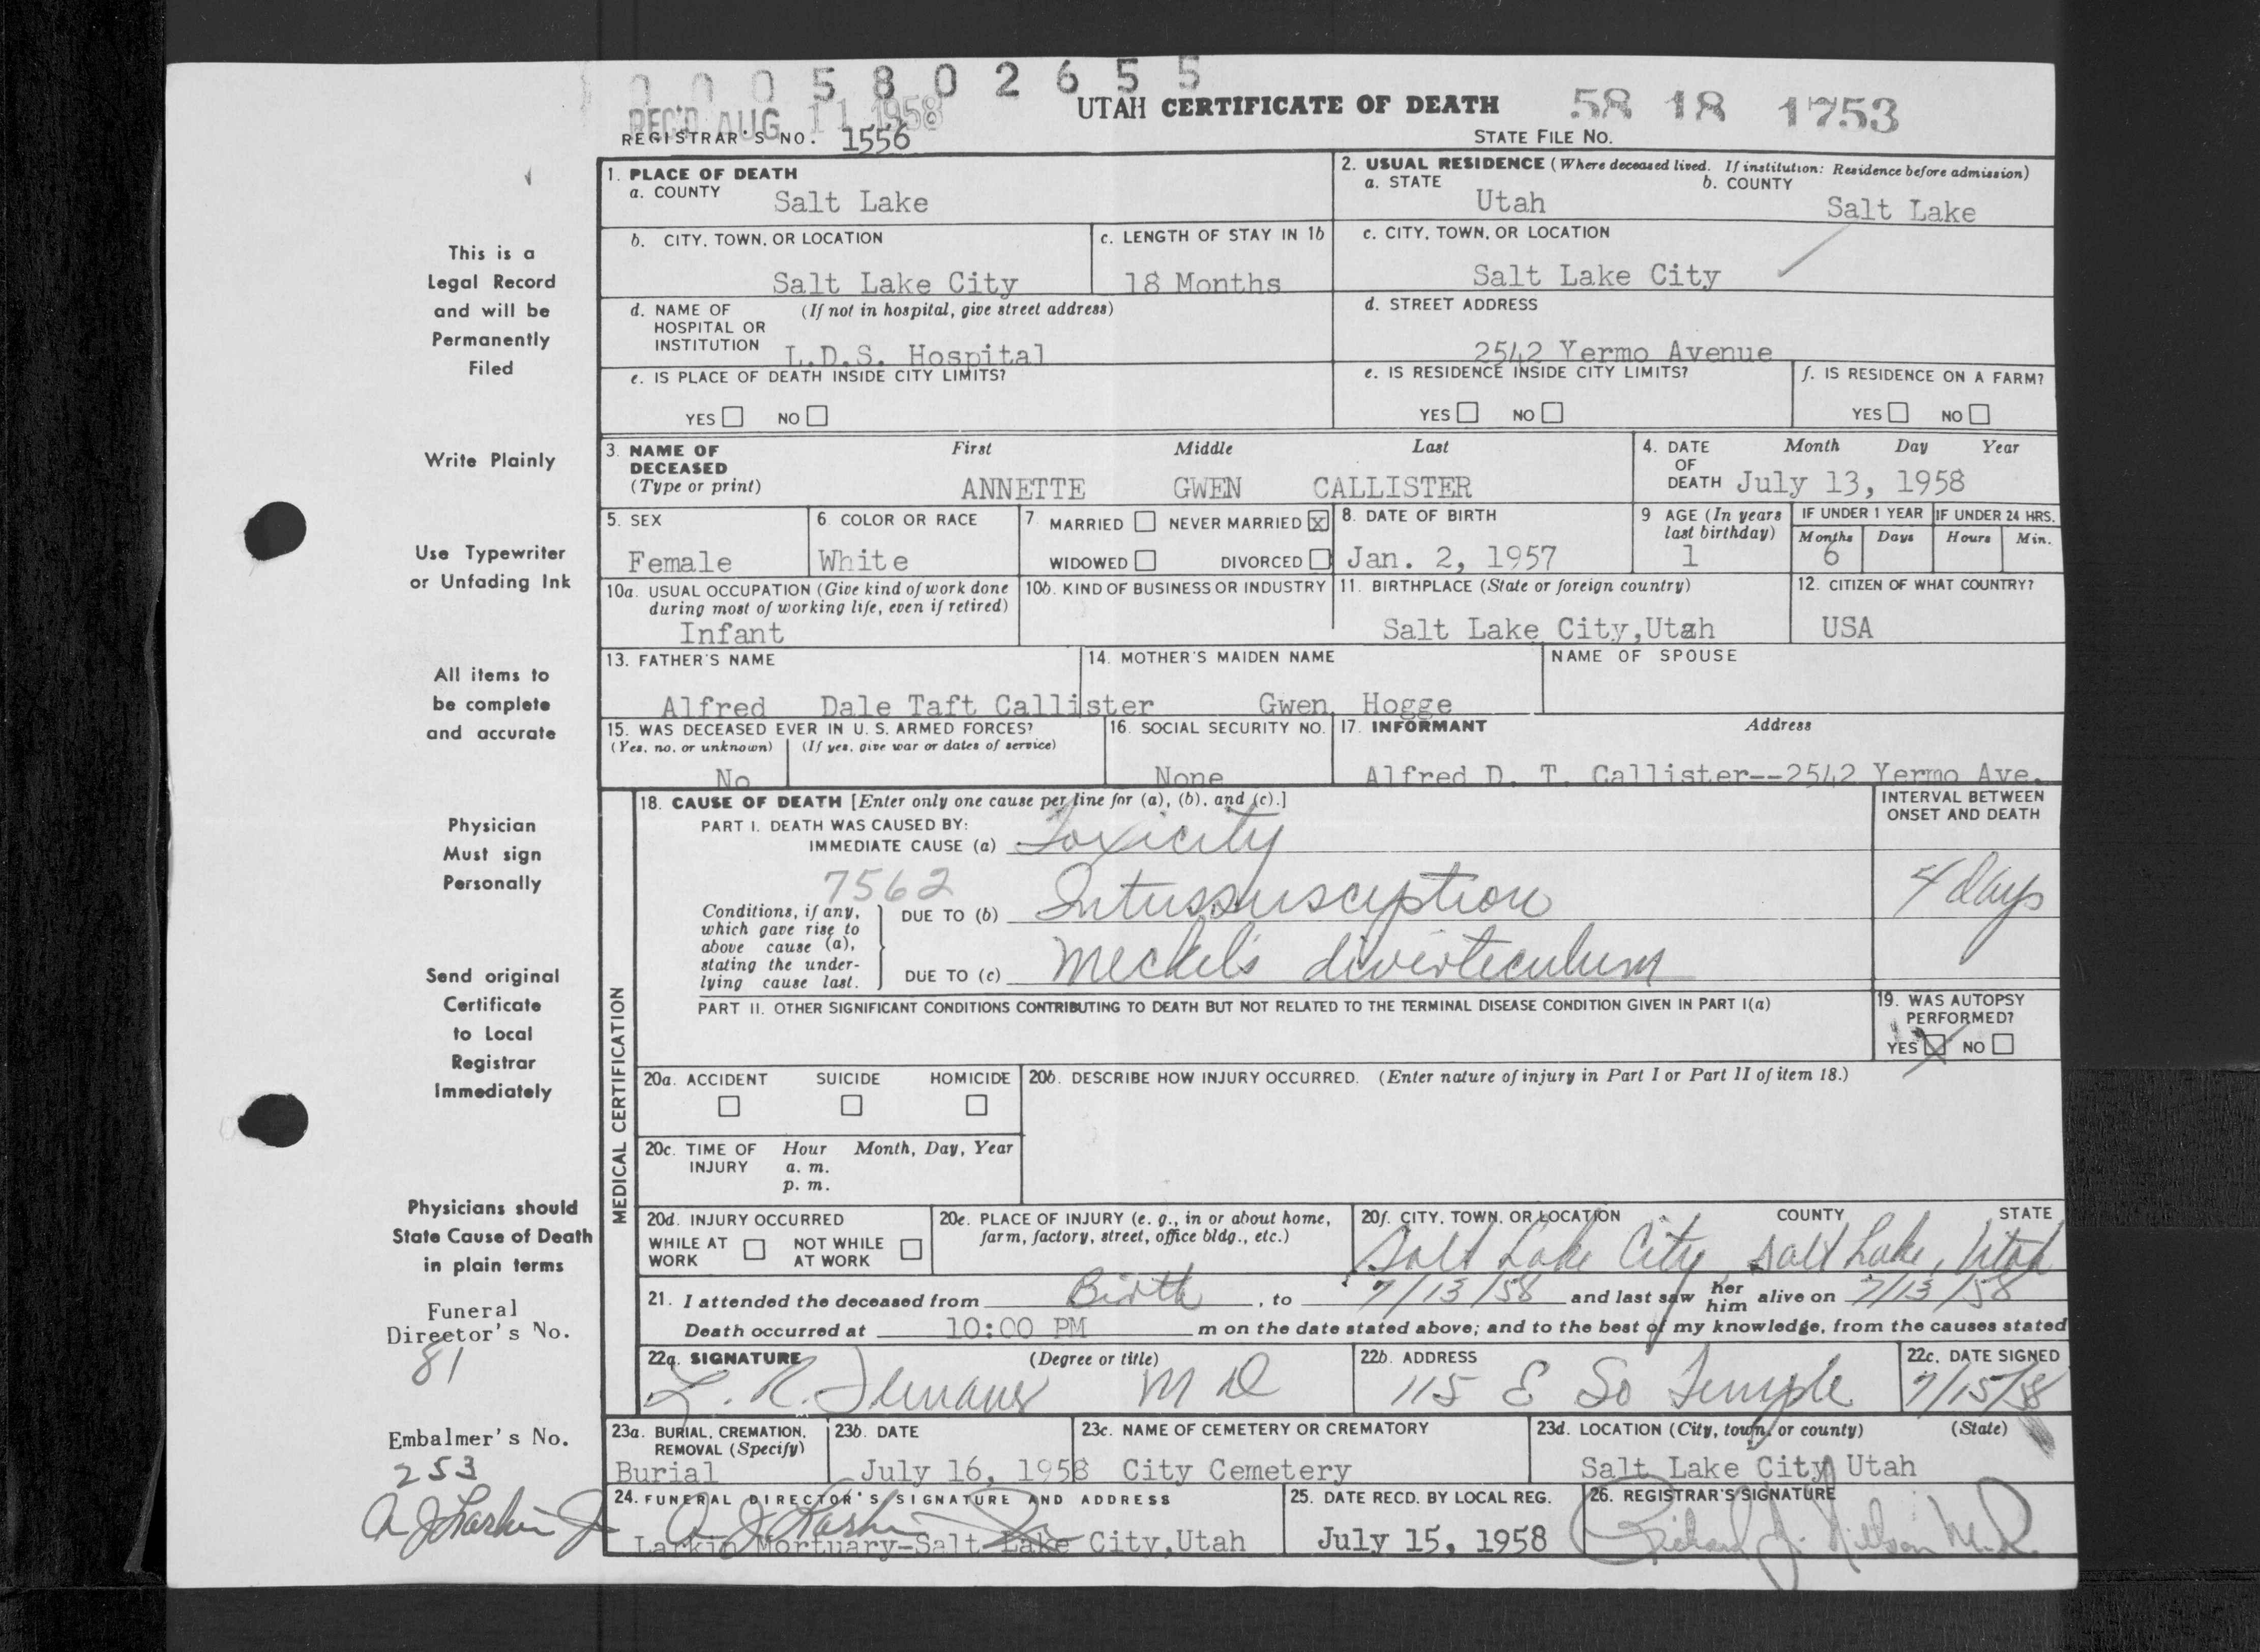 0 0 0 5 8 0 2 6 5 5
REC'D AUG 11 1958
UTAH CERTIFICATE OF DEATH
58 18 1753
REGISTRAR'S NO. 1556
STATE FILE NO.
1. PLACE OF DEATH
a. COUNTY Salt Lake
2. USUAL RESIDENCE (Where deceased lived. If institution: Residence before admission)
a. STATE Utah
b. COUNTY Salt Lake
b. CITY, TOWN, OR LOCATION Salt Lake City
c. LENGTH OF STAY IN 1b 18 Months
c. CITY, TOWN, OR LOCATION Salt Lake City
d. NAME OF HOSPITAL OR INSTITUTION (If not in hospital, give street address) L.D.S. Hospital
d. STREET ADDRESS 2542 Yermo Avenue
e. IS PLACE OF DEATH INSIDE CITY LIMITS?
YES NO
e. IS RESIDENCE INSIDE CITY LIMITS?
YES NO
f. IS RESIDENCE ON A FARM?
YES NO
3. NAME OF DECEASED (Type or print)
First Middle Last
ANNETTE GWEN CALLISTER
4. DATE OF DEATH Month Day Year
July 13, 1958
5. SEX Female
6. COLOR OR RACE White
7. MARRIED NEVER MARRIED X
WIDOWED DIVORCED
8. DATE OF BIRTH Jan. 2, 1957
9 AGE (In years last birthday) 1
IF UNDER 1 YEAR Months 6 Days
IF UNDER 24 HRS. Hours Min.
10a. USUAL OCCUPATION (Give kind of work done during most of working life, even if retired) Infant
10b. KIND OF BUSINESS OR INDUSTRY
11. BIRTHPLACE (State or foreign country) Salt Lake City, Utah
12. CITIZEN OF WHAT COUNTRY? USA
13. FATHER'S NAME Alfred Dale Taft Callister
14. MOTHER'S MAIDEN NAME Gwen Hogge
NAME OF SPOUSE
15. WAS DECEASED EVER IN U. S. ARMED FORCES?
(Yes, no, or unknown) (If yes, give war or dates of service)
No
16. SOCIAL SECURITY NO. None
17. INFORMANT Address
Alfred D. T. Callister--2542 Yermo Ave.
MEDICAL CERTIFICATION
18. CAUSE OF DEATH [Enter only one cause per line for (a), (b), and (c).]
INTERVAL BETWEEN ONSET AND DEATH
PART I. DEATH WAS CAUSED BY:
IMMEDIATE CAUSE (a) Toxicity
7562
4 days
Conditions, if any, which gave rise to above cause (a), stating the underlying cause last.
DUE TO (b) Intussusception
DUE TO (c) Meckel's diverticulum
PART II. OTHER SIGNIFICANT CONDITIONS CONTRIBUTING TO DEATH BUT NOT RELATED TO THE TERMINAL DISEASE CONDITION GIVEN IN PART I(a)
19. WAS AUTOPSY PERFORMED?
YES X NO
20a. ACCIDENT SUICIDE HOMICIDE
20b. DESCRIBE HOW INJURY OCCURRED. (Enter nature of injury in Part I or Part II of item 18.)
20c. TIME OF INJURY Hour Month, Day, Year
a. m.
p. m.
20d. INJURY OCCURRED
WHILE AT WORK NOT WHILE AT WORK
20e. PLACE OF INJURY (e. g., in or about home, farm, factory, street, office bldg., etc.)
20f. CITY, TOWN, OR LOCATION COUNTY STATE
Salt Lake City, Salt Lake, Utah
21. I attended the deceased from Birth, to 7/13/58 and last saw her him alive on 7/13/58
Death occurred at 10:00 PM m on the date stated above; and to the best of my knowledge, from the causes stated
22a. SIGNATURE (Degree or title)
L. R. MD
22b. ADDRESS 115 E So Temple
22c. DATE SIGNED 7/15/58
23a. BURIAL, CREMATION, REMOVAL (Specify) Burial
23b. DATE July 16, 1958
23c. NAME OF CEMETERY OR CREMATORY City Cemetery
23d. LOCATION (City, town, or county) (State)
Salt Lake City Utah
24. FUNERAL DIRECTOR'S SIGNATURE AND ADDRESS
A J Larkin Jr
Larkin Mortuary-Salt Lake City, Utah
25. DATE RECD. BY LOCAL REG. July 15, 1958
26. REGISTRAR'S SIGNATURE
Richard J. Nilson M.D.
This is a
Legal Record
and will be
Permanently
Filed
Write Plainly
Use Typewriter
or Unfading Ink
All items to
be complete
and accurate
Physician
Must sign
Personally
Send original
Certificate
to Local
Registrar
Immediately
Physicians should
State Cause of Death
in plain terms
Funeral
Director's No.
81
Embalmer's No.
253
A J Larkin Jr